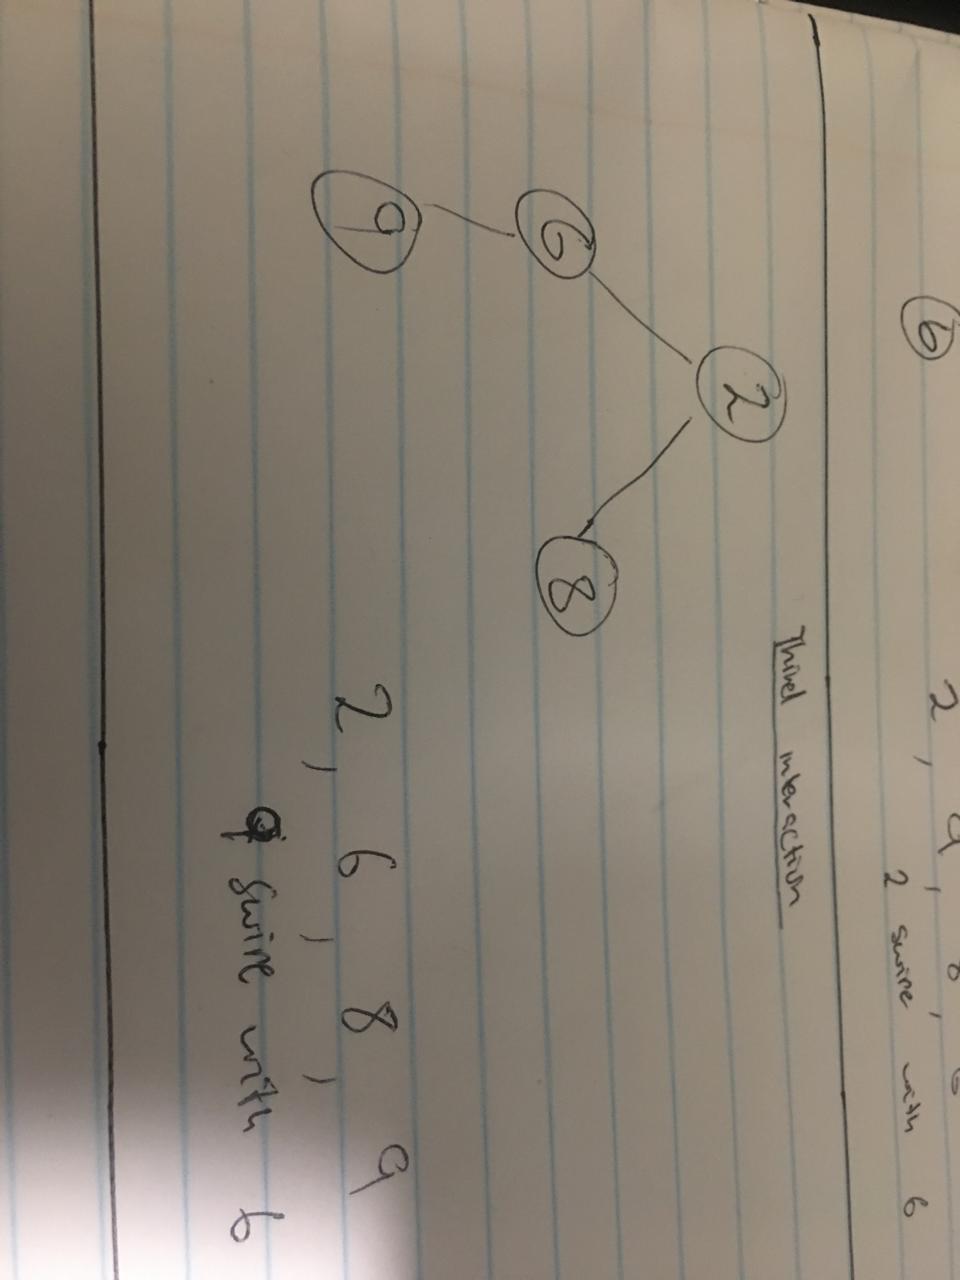 6
2, 9, 8, 6
2 swire with 6
Third interaction
2
6 8
9
2, 6, 8, 9
9 swire with 6